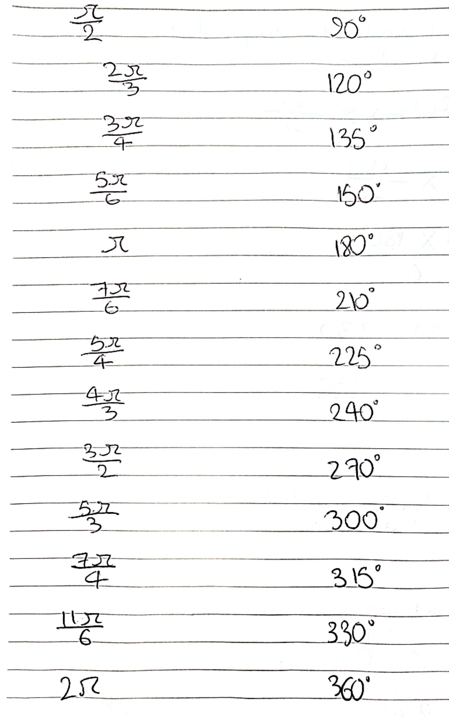 π/2 90°
2π/3 120°
3π/4 135°
5π/6 150°
π 180°
7π/6 210°
5π/4 225°
4π/3 240°
3π/2 270°
5π/3 300°
7π/4 315°
11π/6 330°
2π 360°